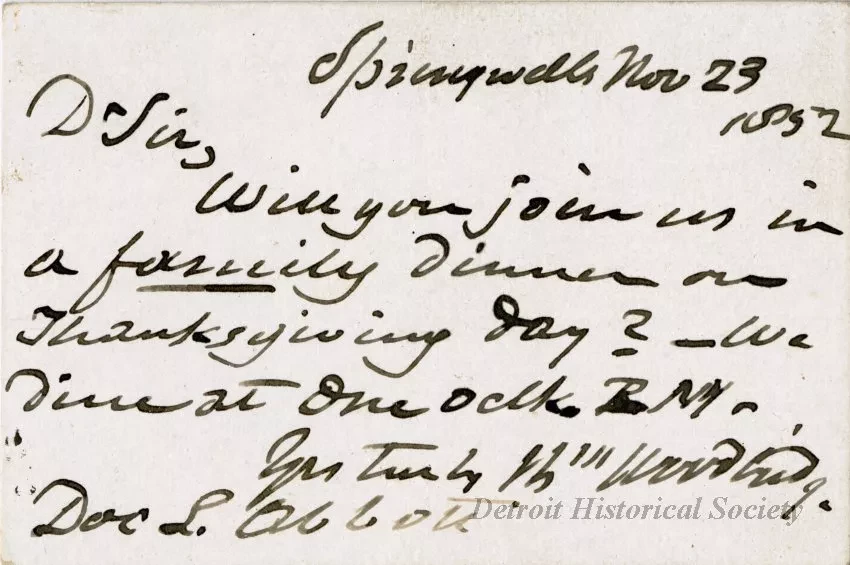 Springwells Nov 23
1852
Dr Sir,
Will you join us in
a family dinner on
Thanksgiving day? — We
dine at One oclk. P.M.
Yrs truly Wm Woodbridge
Doc L. Abbott
Detroit Historical Society